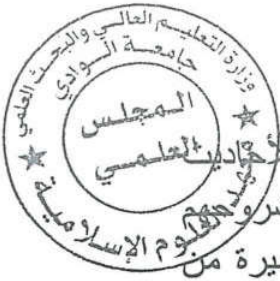 وزارة التعليم العالي والبحث العلمي
جامعة الوادي
المجلس
العلمي
العلوم الإسلامية